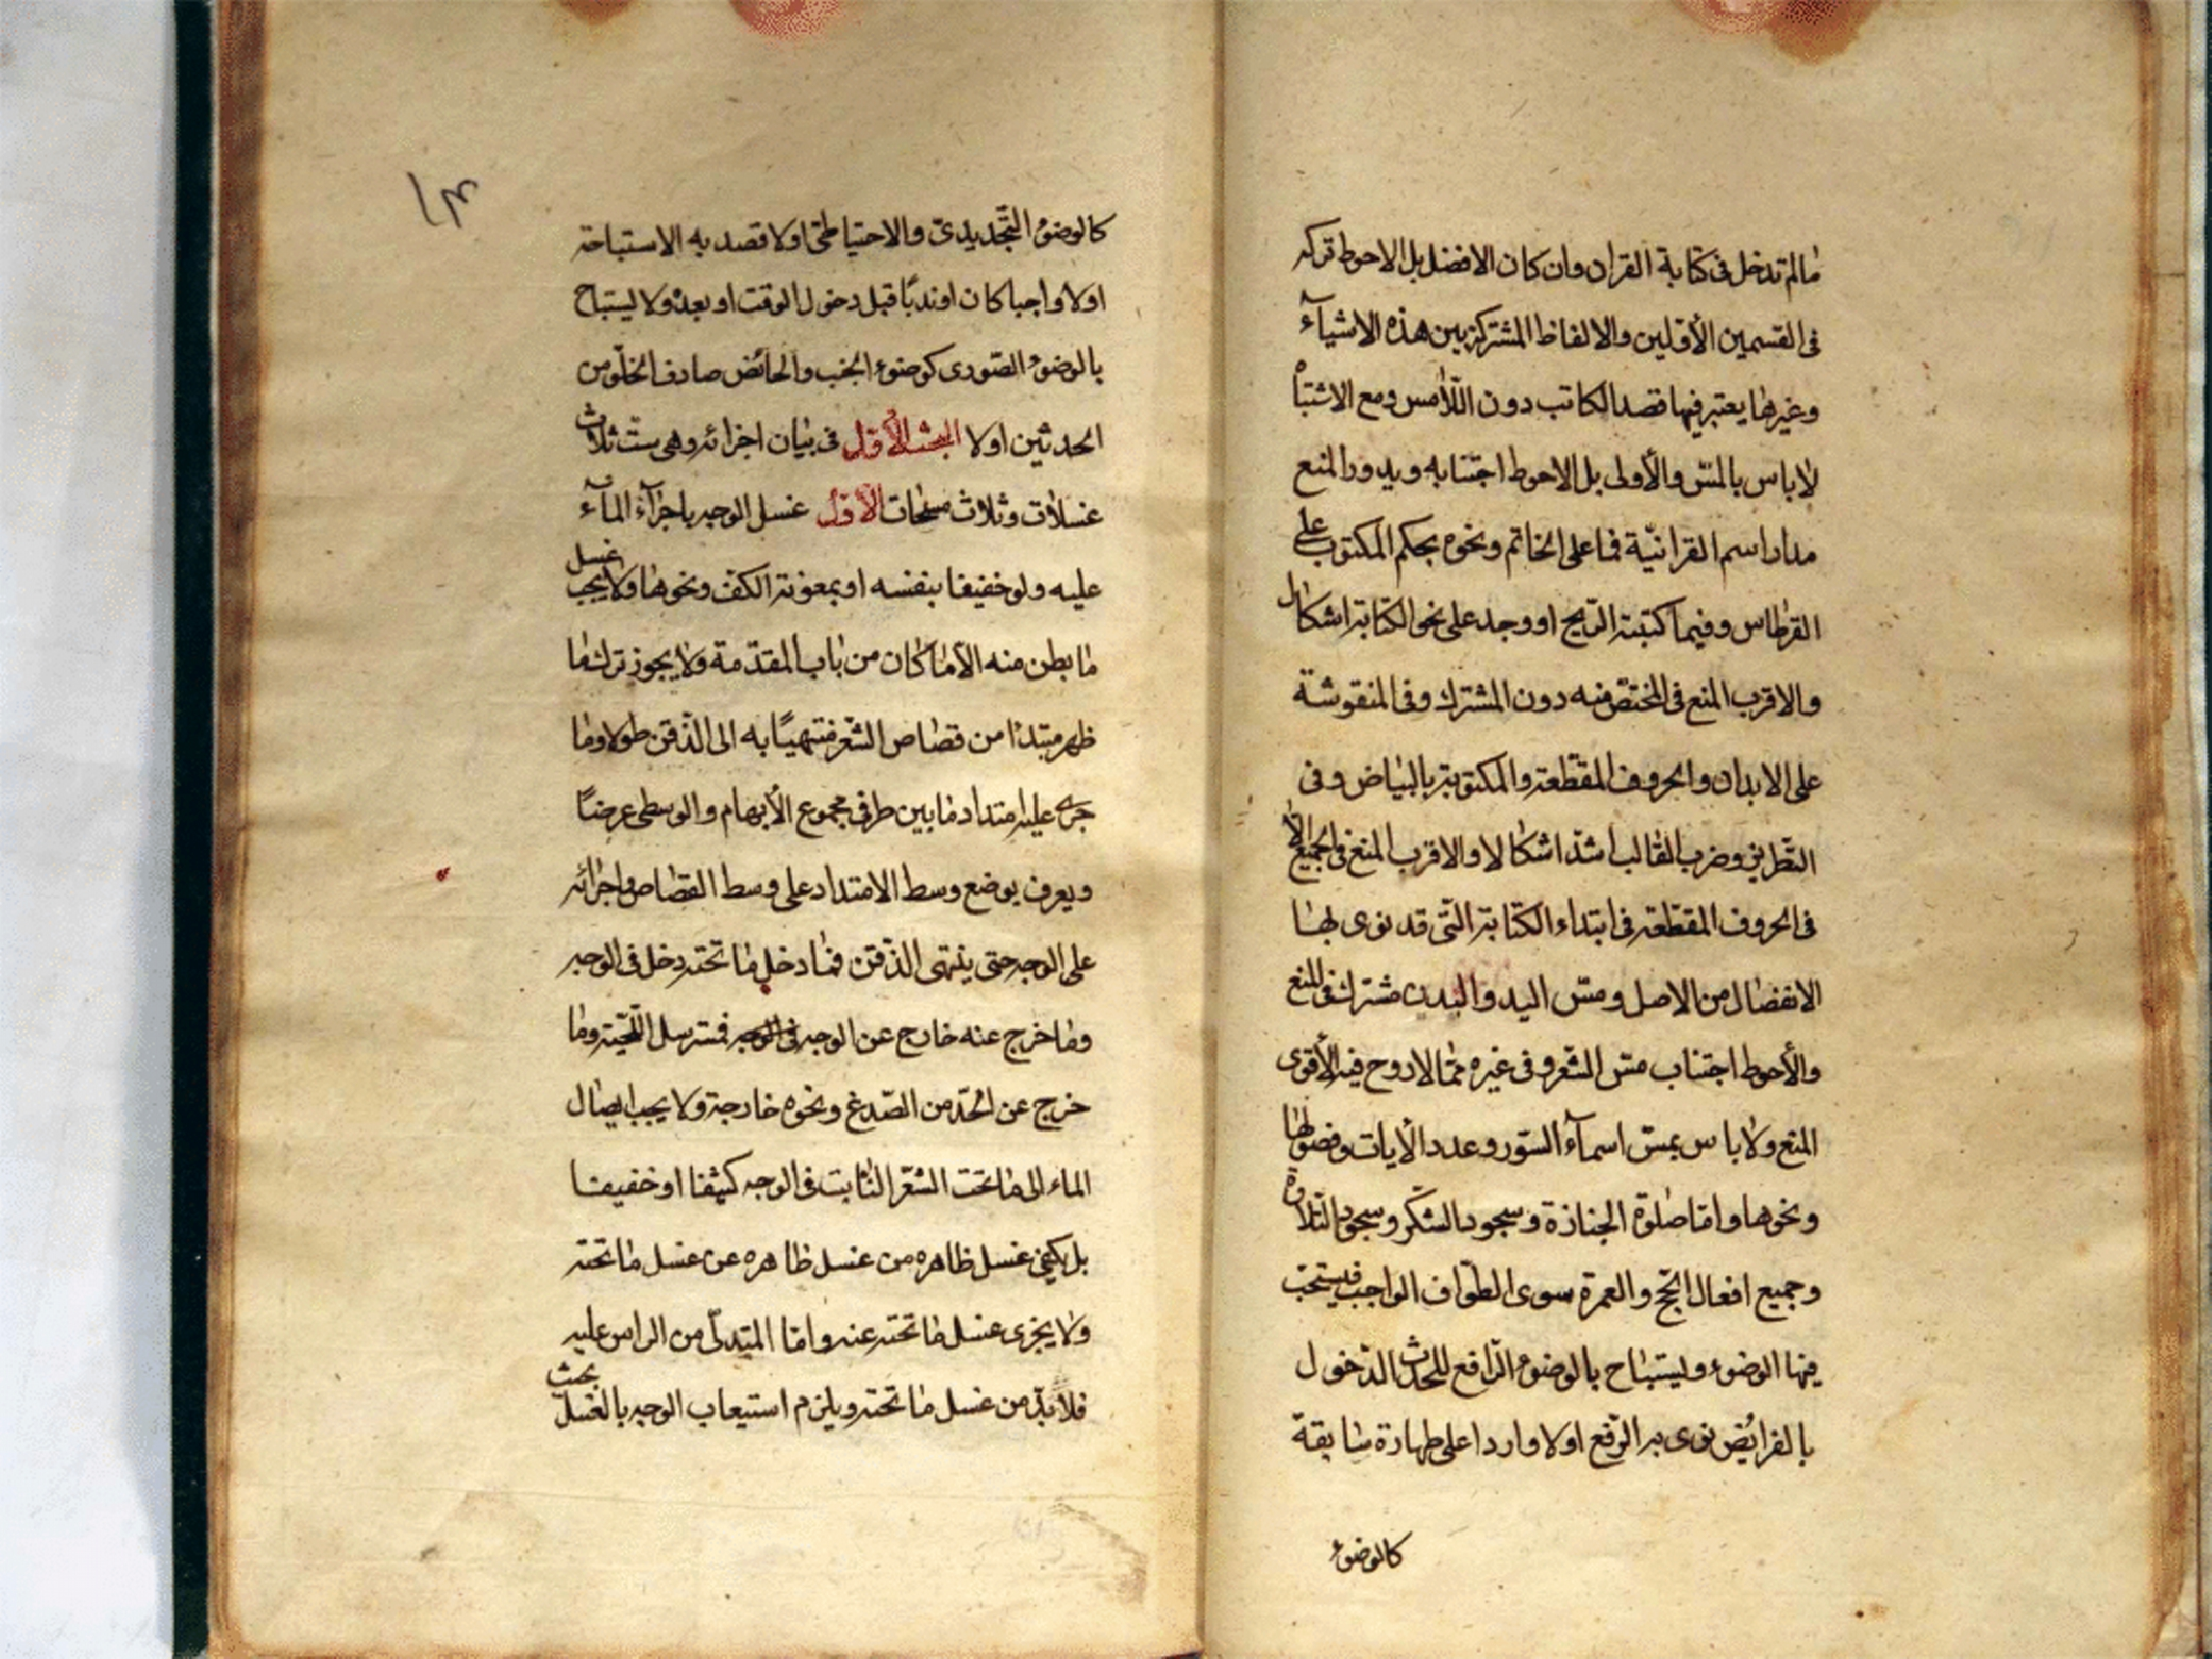 مالم تدخل فی کتابة القران وان کان الافضل بل الاحوط ترکه
فی القسمین الأوّلین والالفاظ المشترکة بین هذه الاشیآء
وغیرها یعتبر فیها قصد الکاتب دون اللّامس ومع الاشتباه
لاباس بالمسّ والأولی بل الاحوط اجتنابه ویدور المنع
مدار اسم القرانیّة فما علی الخاتم ونحوه بحکم المکتوب علی
القرطاس وفیما کتبته الرّیح او وجد علی نحو الکتابة اشکال
والاقرب المنع فی المختصّ منه دون المشترک وفی المنقوشة
علی الابدان والحروف المقطّعة والمکتوبة بالبیاض وفی
التّطریز وضرب القالب اشدّ اشکالا والاقرب المنع فی الجمیع الّا
فی الحروف المقطّعة فی ابتداء الکتابة الّتی قد نوی بها
الانفصال من الاصل ومسّ الید والبدن مشترک فی المنع
والأحوط اجتناب مسّ الشّعر وفی غیره ممّا لا روح فیه الأقوی
المنع ولاباس بمسّ اسمآء السّور وعدد الأیات وفصولها
ونحوها وامّا صلوة الجنازة وسجود الشّکر وسجود التّلاوة
وجمیع افعال الحجّ والعمرة سوی الطّواف الواجب فیستحبّ
فیها الوضوء ویستباح بالوضوء الرّافع للحدث الدّخول
بالفرائض نوی به الرّفع اولا واردا علی طهارة سابقة
کالوضوء
١٣
کالوضوء التّجدیدیّ والاحتیاطیّ اولا قصد به الاستباحة
اولا واجبا کان او ندبًا قبل دخول الوقت او بعده ولا یستباح
بالوضوء الصّوری کوضوء الجنب والحائض صادف الخلوّ من
الحدثین اولا البحث الأوّل فی بیان اجزائه وهی ستّ ثلاث
غسلات وثلاث مسحات الأوّل غسل الوجه باجرآء المآء
علیه ولو خفیفا بنفسه او بمعونة الکفّ ونحوها ولا یجب غسل
ما بطن منه الّا ما کان من باب المقدّمة ولا یجوز ترک ما
ظهر مبتدئا من قصاص الشّعر منتهیًا به الی الذّقن طولا وما
جری علیه امتداد ما بین طرفی مجموع الأبهام والوسطی عرضًا
ویعرف بوضع وسط الامتداد علی وسط القصاص واجرائه
علی الوجه حتی ینتهی الذّقن فما دخل ما تحته دخل فی الوجه
وما خرج عنه خارج عن الوجه فمسترسل اللّحیة وما
خرج عن الحدّ من الصّدغ ونحوه خارجة ولا یجب ایصال
الماء الی ما تحت الشّعر النّابت فی الوجه کثیفا او خفیفا
بل یکفی غسل ظاهره من غسل ظاهره عن غسل ما تحته
ولا یجزی غسل ما تحته عنه وامّا المتدلّی من الراس علیه
فلا بدّ من غسل ما تحته ویلزم استیعاب الوجه بالغسل بحیث